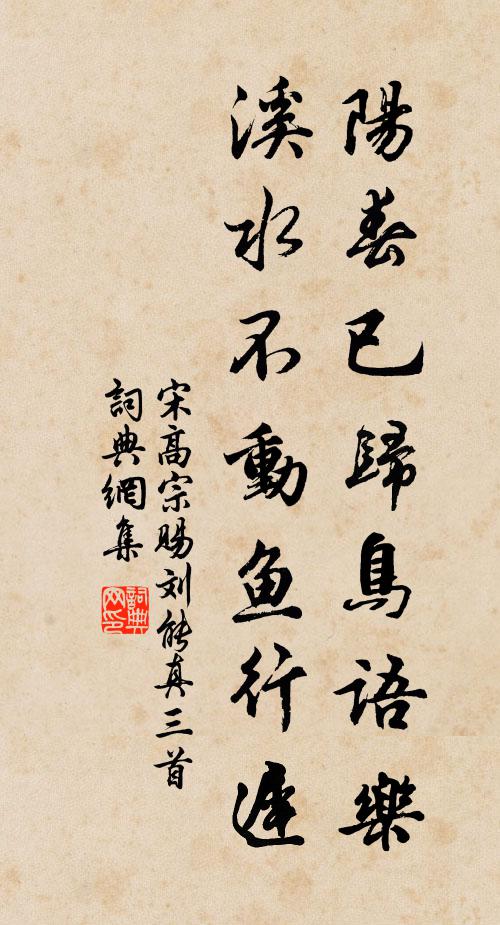 陽春已歸鳥語樂
溪水不動鱼行遲
宋高宗賜刘能真三首
詞典網集
詞典网印